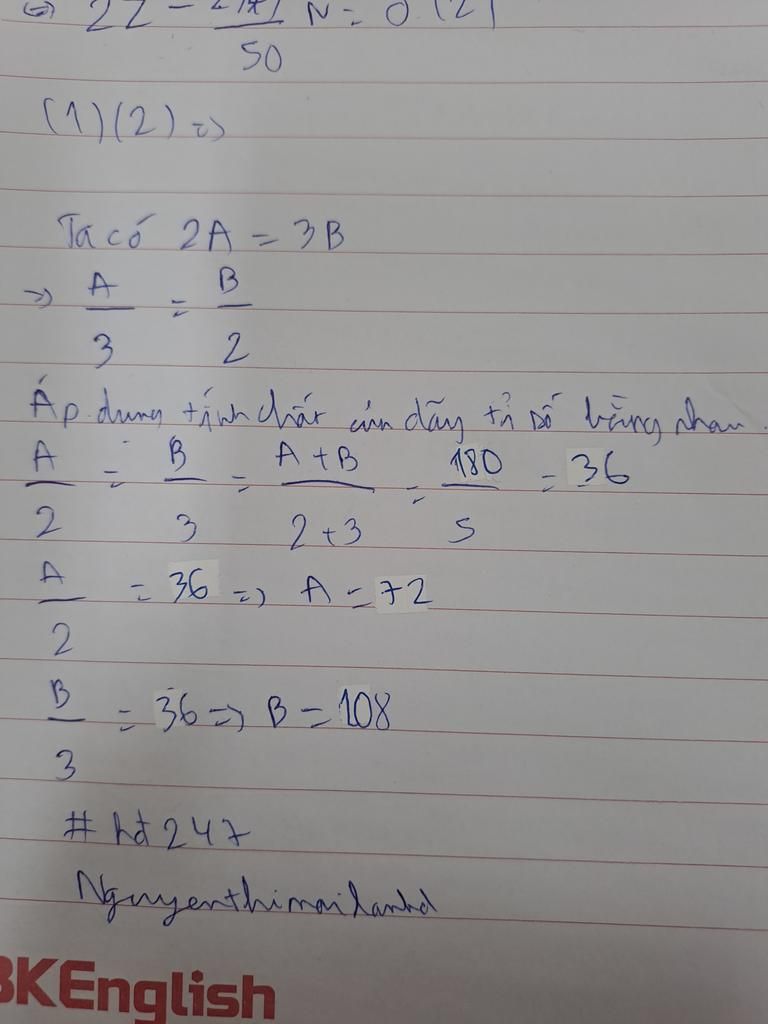 ⇔ 2Z - /50 N = 0 (2)
(1)(2) =>
Ta có 2A = 3B
=> A/3 = B/2
Áp dụng tính chất của dãy tỉ số bằng nhau.
A/2 = B/3 = A+B/2+3 = 180/5 = 36
A/2 = 36 => A = 72
B/3 = 36 => B = 108
# hd247
Nguyenthimailanhd
BKEnglish